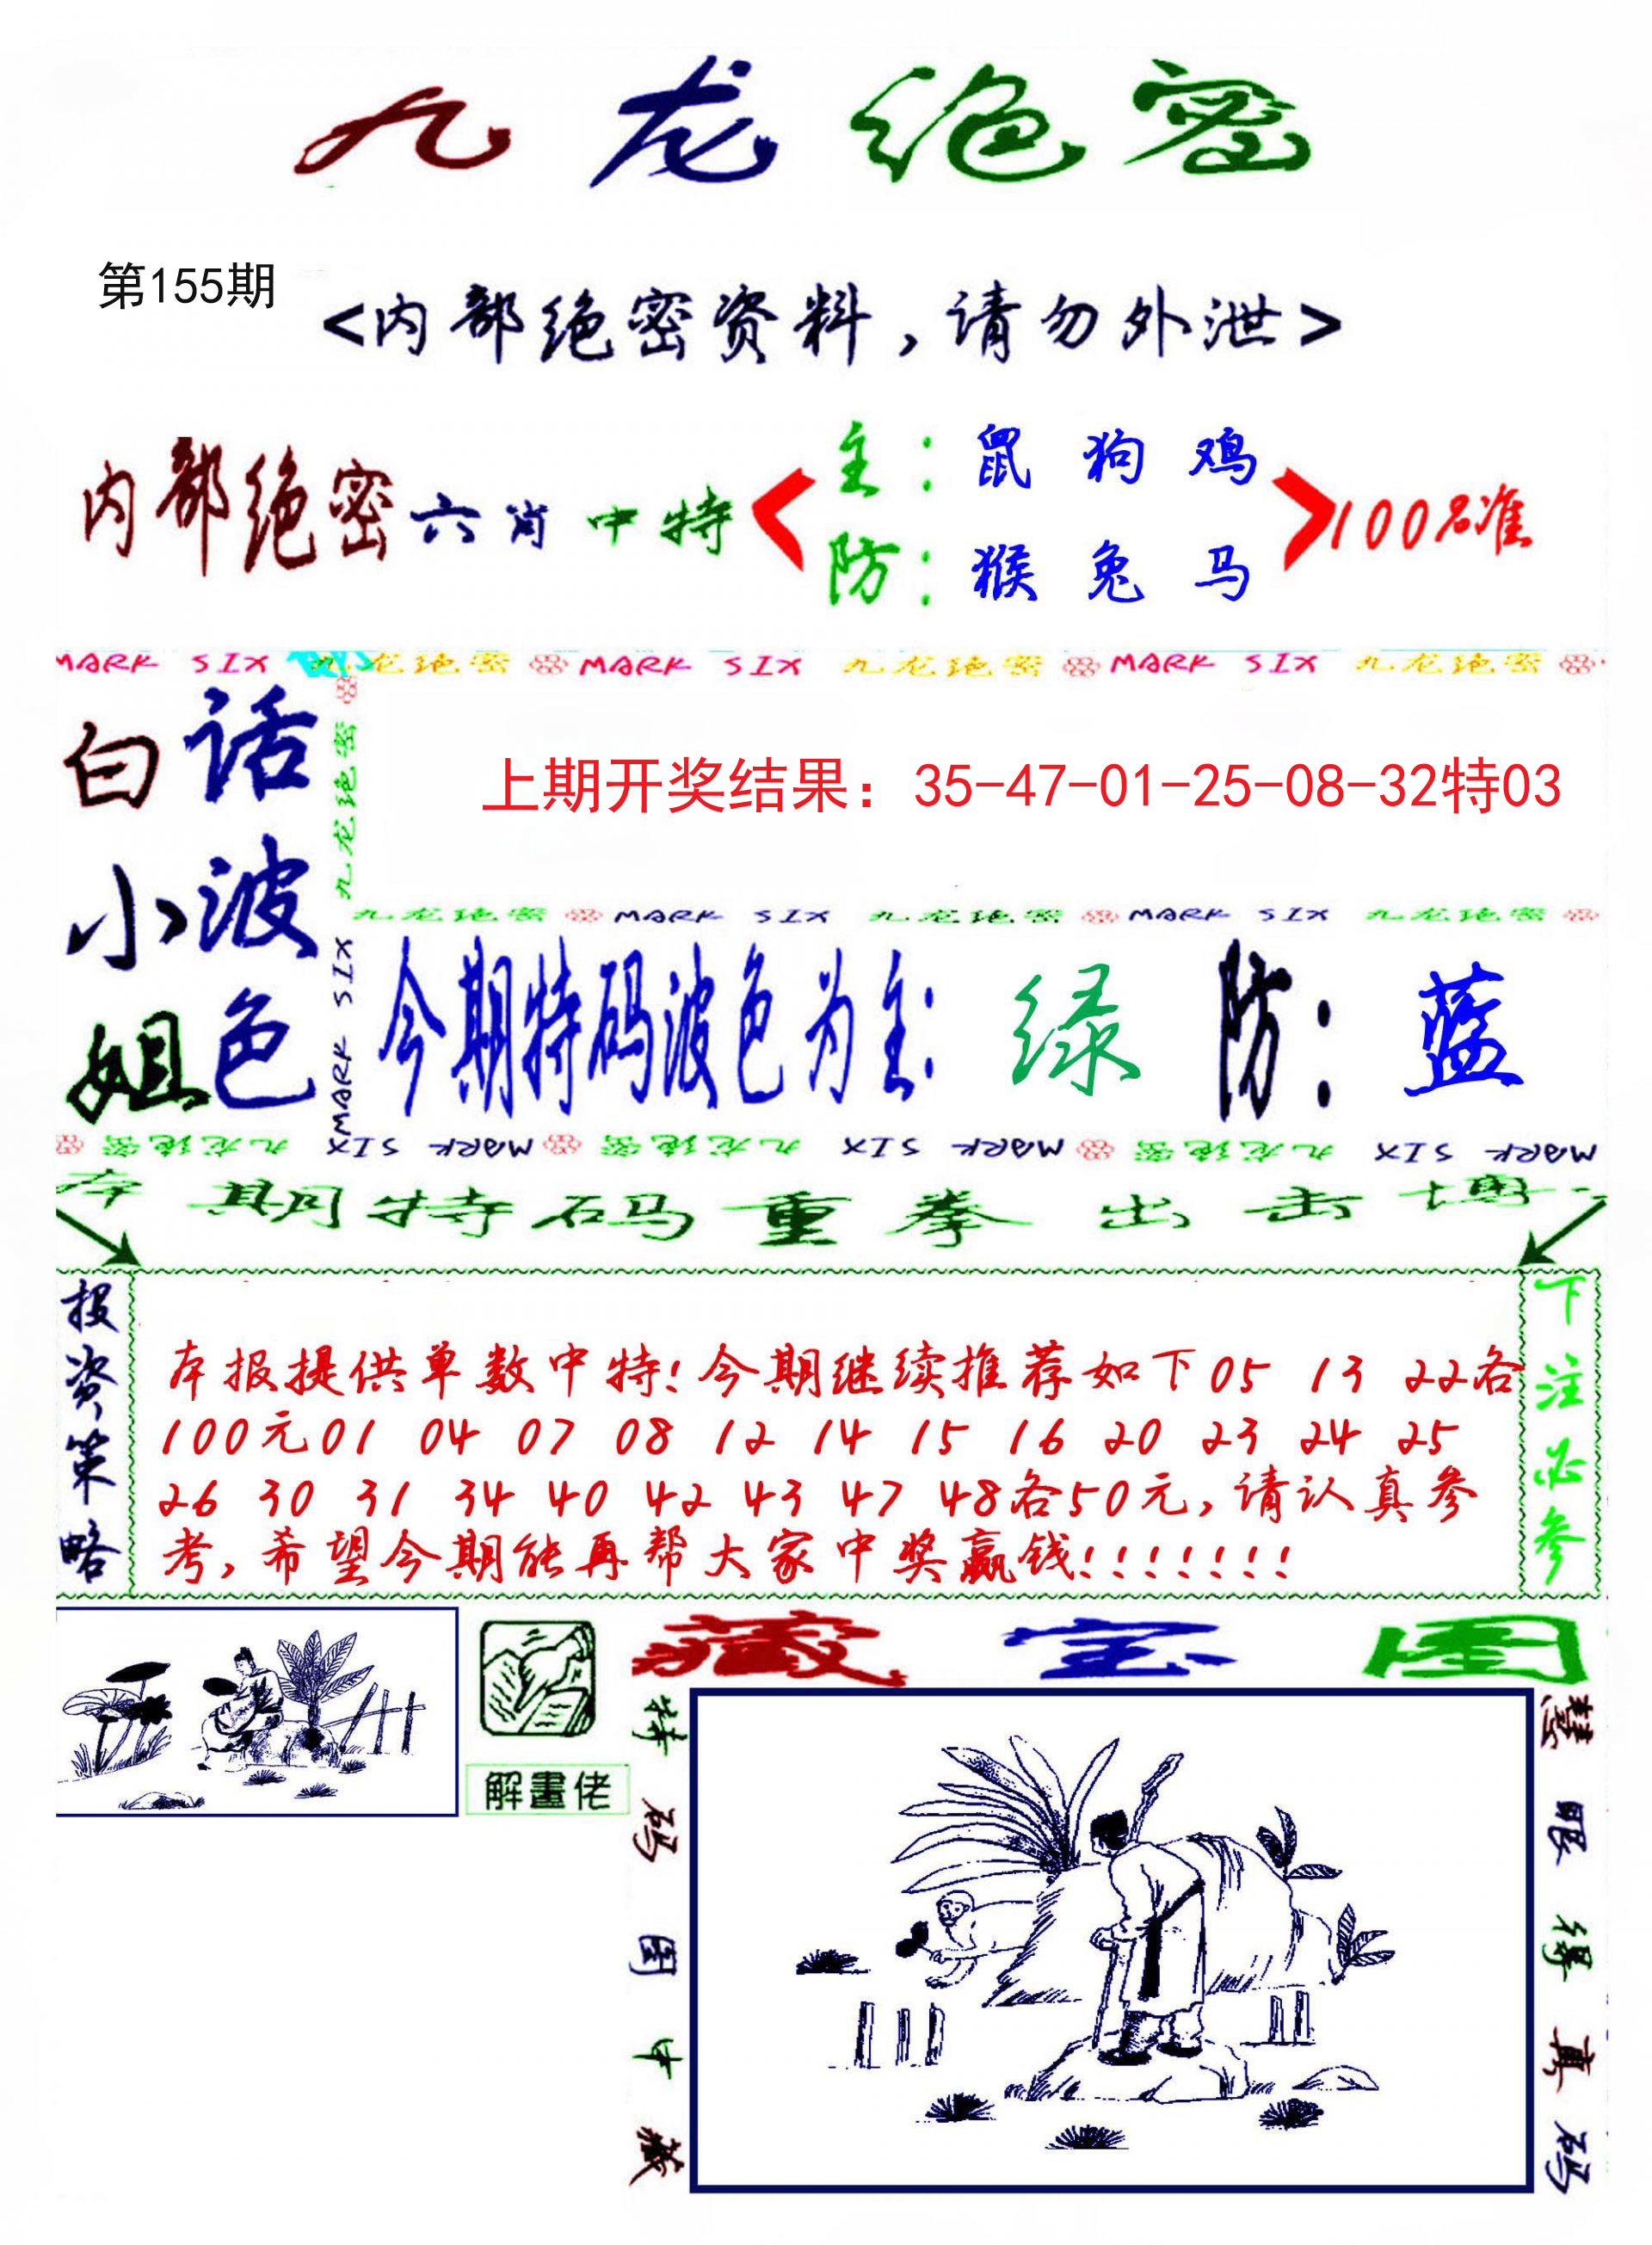 九龙绝密
第155期
<内部绝密资料，请勿外泄>
内部绝密六肖中特
主：鼠 狗 鸡
防：猴 兔 马
100%准
MARK SIX 九龙绝密 MARK SIX 九龙绝密 MARK SIX 九龙绝密
白小姐
话波色
九龙绝密
MARK SIX
上期开奖结果：35-47-01-25-08-32特03
九龙绝密 MARK SIX 九龙绝密 MARK SIX 九龙绝密
今期特码波色为主：绿 防：蓝
MARK SIX 九龙绝密 MARK SIX 九龙绝密 MARK SIX 九龙绝密
本期特码重拳出击博
投资策略
本报提供单数中特!今期继续推荐如下05 13 22各
100元01 04 07 08 12 14 15 16 20 23 24 25
26 30 31 34 40 42 43 47 48各50元,请认真参
考,希望今期能再帮大家中奖赢钱!!!!!!!
下注必参
解畫佬
藏宝图
特码图中藏
慧眼得真码